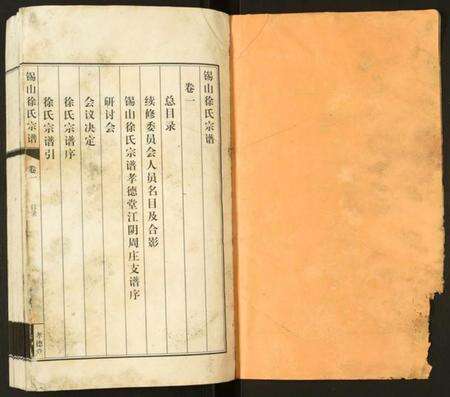 锡山徐氏宗谱
卷一
总目录
续修委员会人员名目及合影
锡山徐氏宗谱孝德堂江阴周庄支谱序
研讨会
会议决定
徐氏宗谱序
徐氏宗谱引
锡山徐氏宗谱
卷一
目录
孝德堂